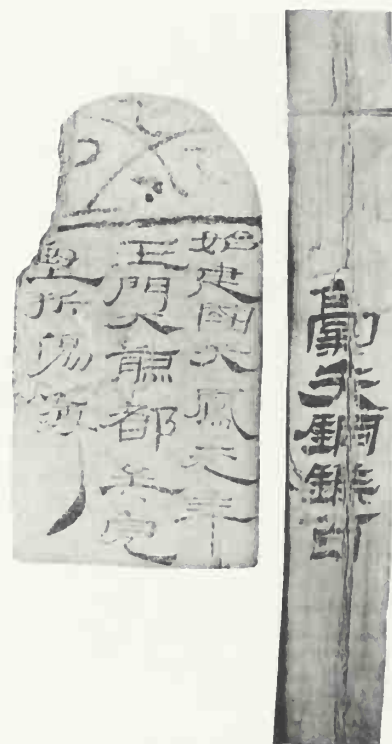 稾矢銅鍭百
始建國天鳳元年
玉門大煎都兵完
堅折傷簿